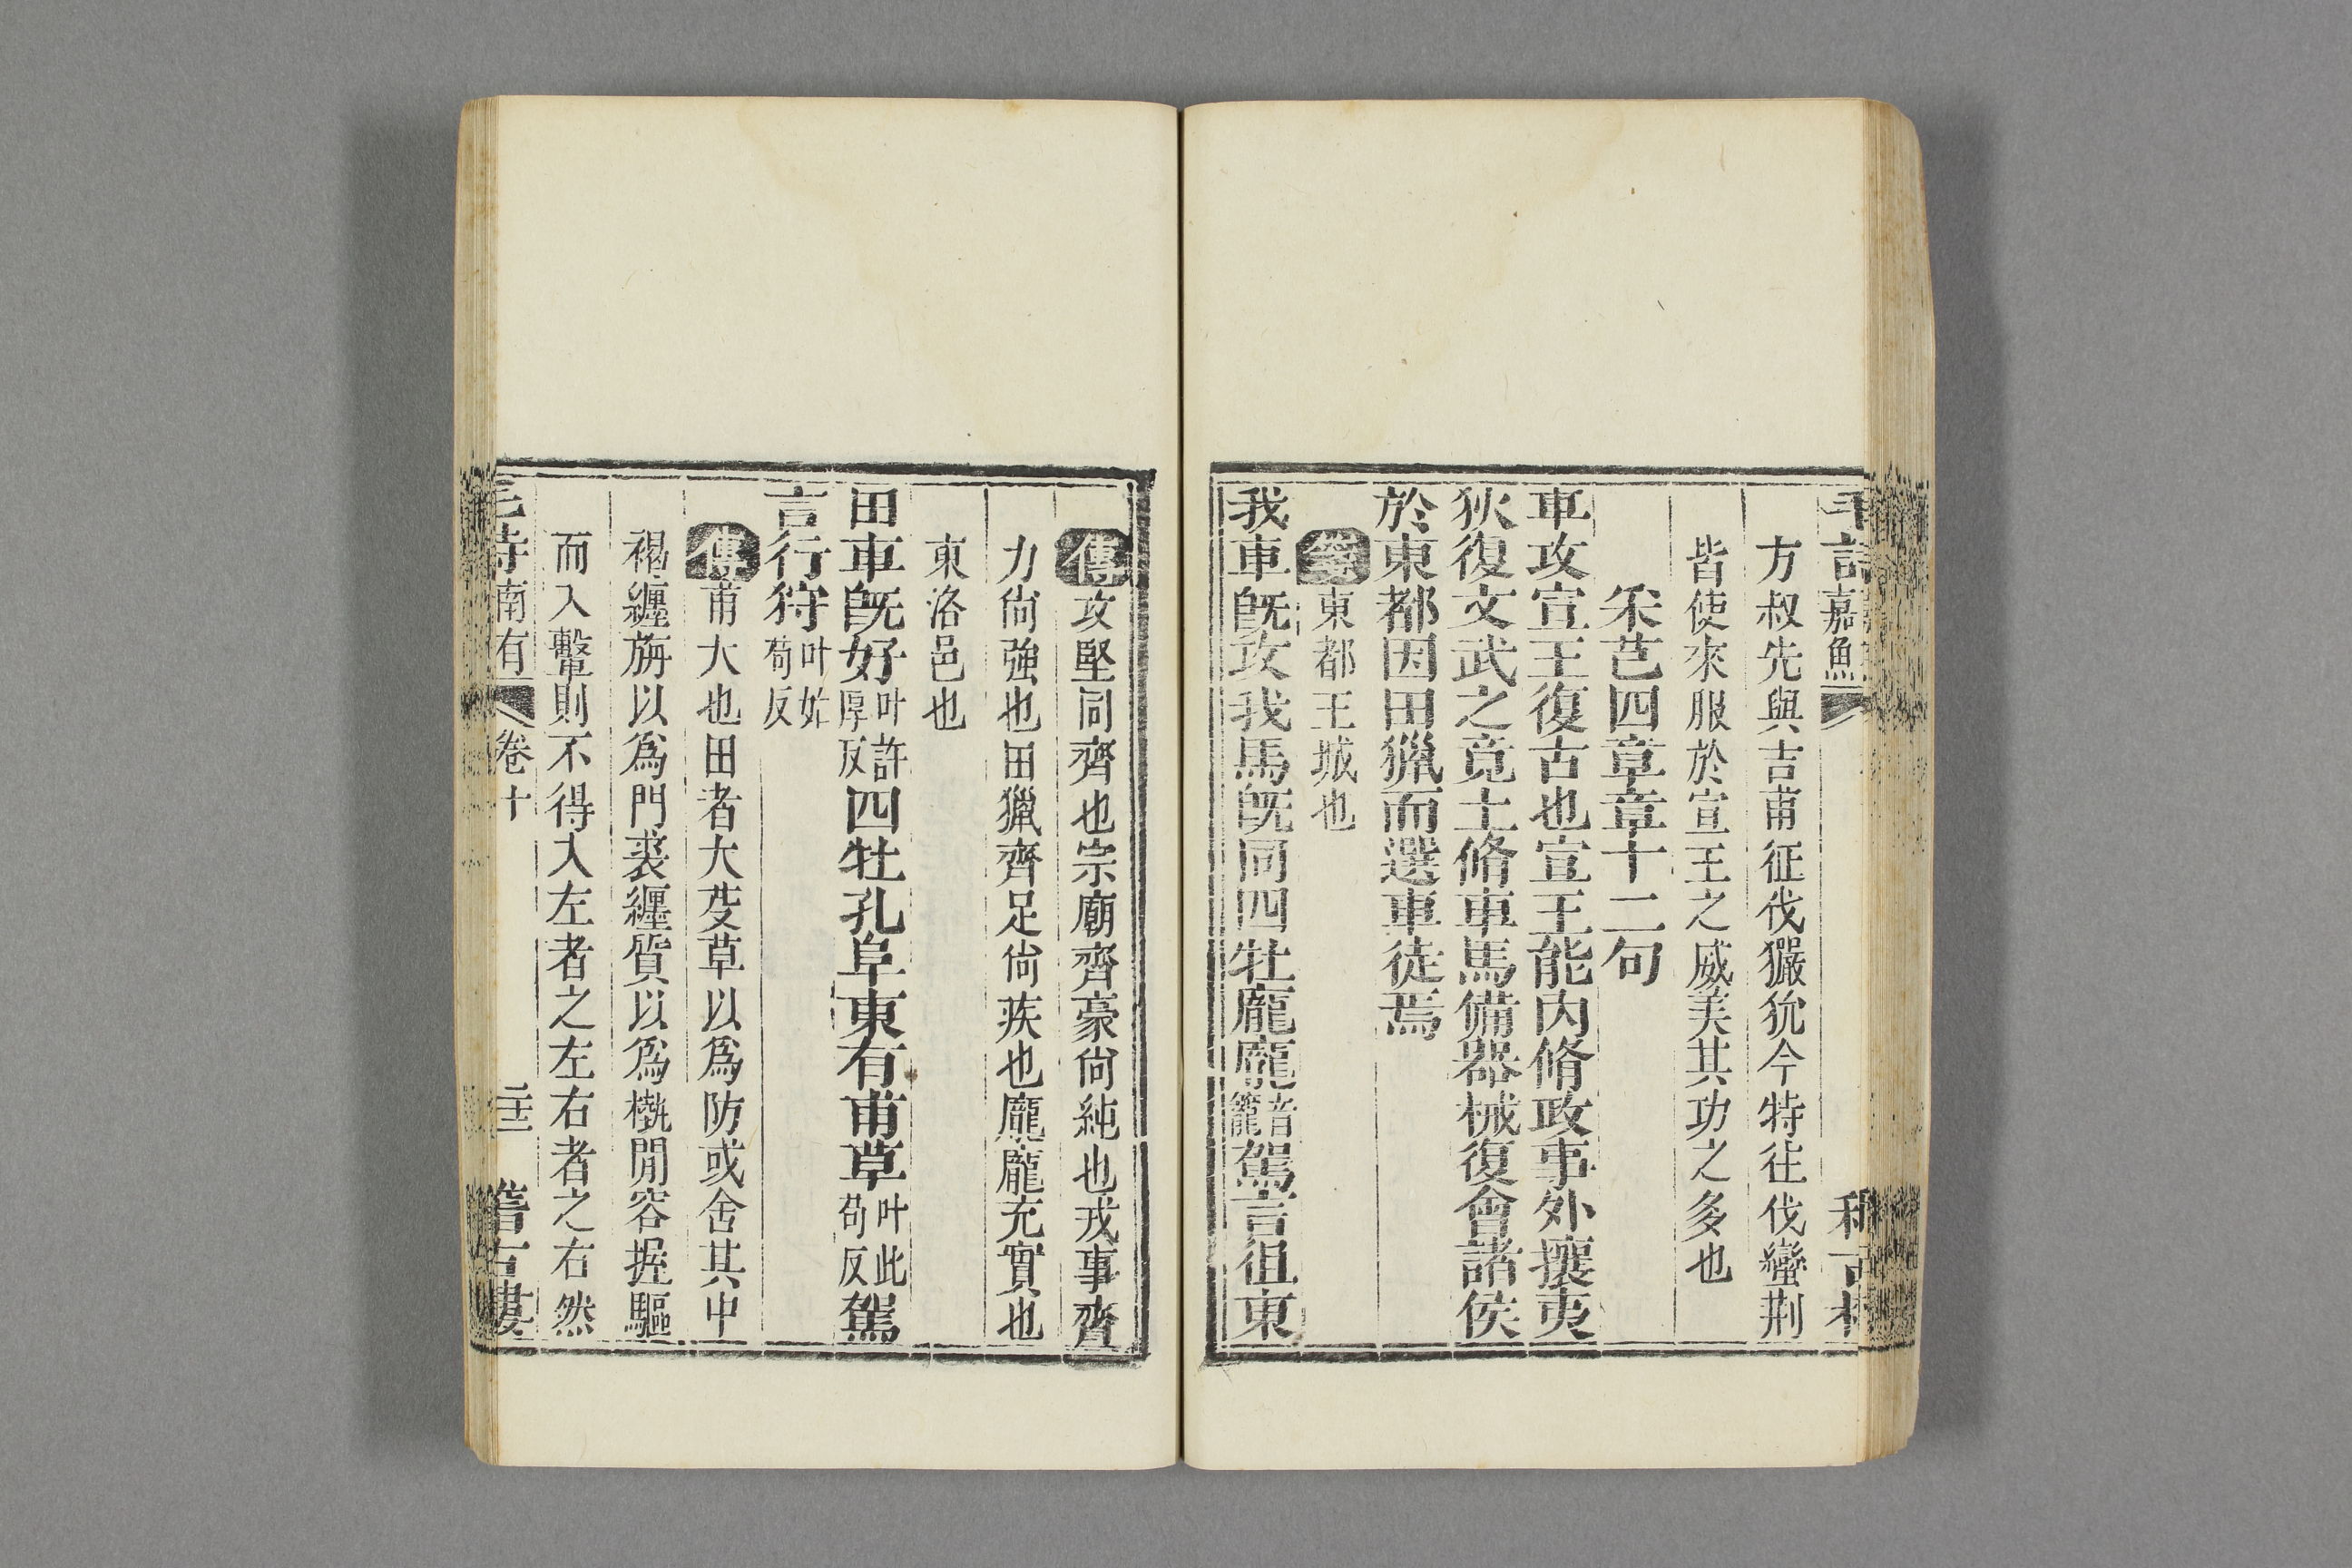 毛詩嘉魚
方叔先與吉甫征伐玁狁今特往伐蠻荆
皆使來服於宣王之威美其功之多也
采芑四章章十二句
車攻宣王復古也宣王能内脩政事外攘夷
狄復文武之竟土脩車馬備器械復會諸侯
於東都因田獵而選車徒焉
箋東都王城也
我車旣攻我馬旣同四牡龐龐音籠駕言徂東
傳攻堅同齊也宗廟齊豪尙純也戎事齊
力尙強也田獵齊足尙疾也龐龐充實也
東洛邑也
田車旣好叶許厚反四牡孔阜東有甫草叶此苟反駕
言行狩叶始苟反
傳甫大也田者大芟草以爲防或舍其中
褐纏旃以爲門裘纏質以爲槸閒容握驅
而入轚則不得入左者之左右者之右然
毛詩南有 卷十 二十三 稽古樓